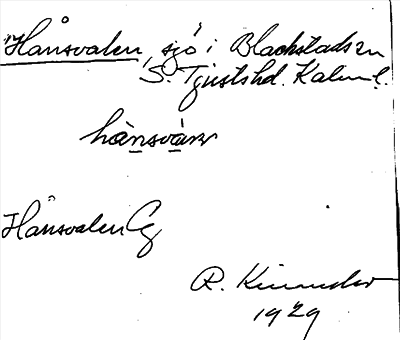 Hånsvalen, sjö i Blackstads sn
S. Tjusts hd. Kalm. l.
hånsvàrn
Hånsvalen Cg
R. Kinnander
1929